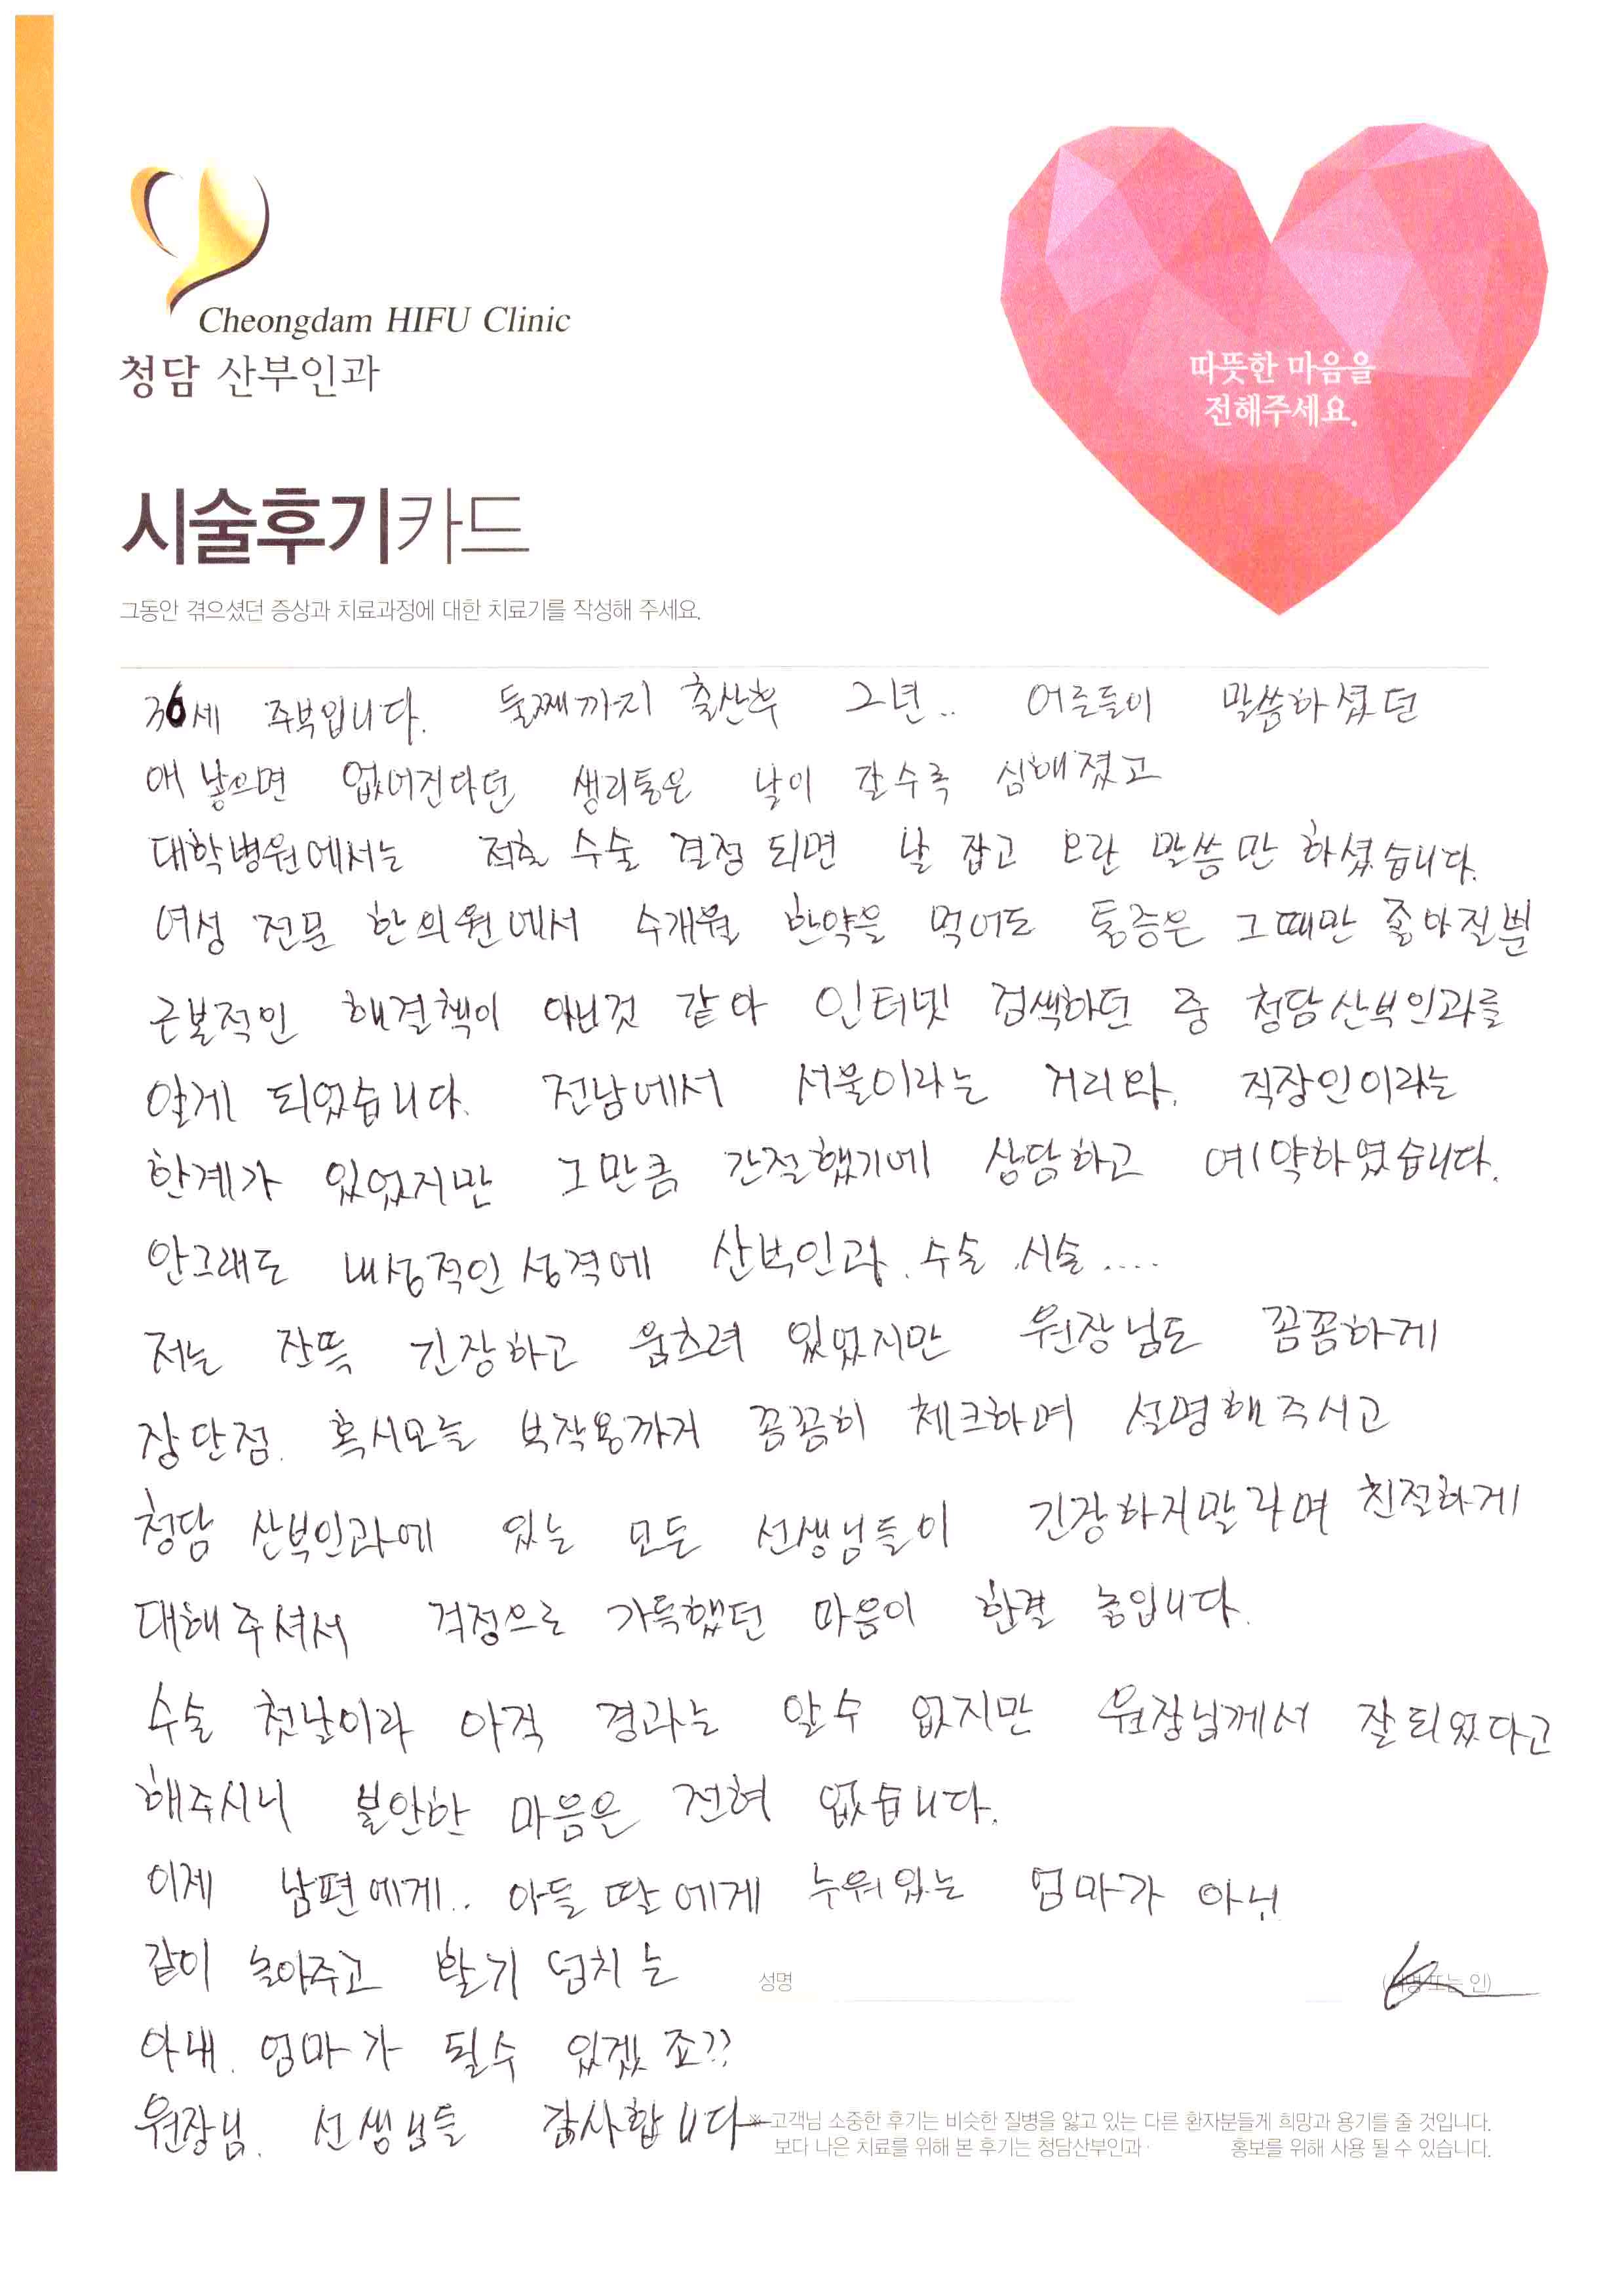 Cheongdam HIFU Clinic
청담 산부인과
따뜻한 마음을
전해주세요.
시술후기카드
그동안 겪으셨던 증상과 치료과정에 대한 치료기를 작성해 주세요.
36세 주부입니다. 둘째까지 출산후 그년.. 어른들이 말씀하셨던
애 낳으면 없어진다던 생리통은 날이 갈수록 심해졌고
대학병원에서는 적출 수술 결정 되면 날 잡고 오란 말씀만 하셨습니다.
여성 전문 한의원에서 수개월 한약을 먹어도 통증은 그때만 좋아질뿐
근본적인 해결책이 아닌것 같아 인터넷 검색하던 중 청담산부인과를
알게 되었습니다. 전남에서 서울이라는 거리와, 직장인이라는
한계가 있었지만 그만큼 간절했기에 상담하고 예약하였습니다.
안그래도 내성적인 성격에 산부인과, 수술, 시술....
저는 잔뜩 긴장하고 움츠려 있었지만 원장님도 꼼꼼하게
장단점, 혹시모늘 부작용까지 꼼꼼히 체크하며 설명해주시고
청담 산부인과에 있는 모든 선생님들이 긴장하지말라며 친절하게
대해주셔서 걱정으로 가득했던 마음이 한결 놓입니다.
수술 첫날이라 아직 경과는 알수 없지만 원장님께서 잘되었다고
해주시니 불안한 마음은 전혀 없습니다.
이제 남편에게.. 아들 딸에게 누워있는 엄마가 아닌
같이 놀아주고 활기 넘치는
성명 (서명 또는 인)
아내. 엄마가 될수 있겠죠??
원장님, 선생님들 감사합니다
※ 고객님 소중한 후기는 비슷한 질병을 앓고 있는 다른 환자분들게 희망과 용기를 줄 것입니다.
보다 나은 치료를 위해 본 후기는 청담산부인과· 홍보를 위해 사용 될 수 있습니다.